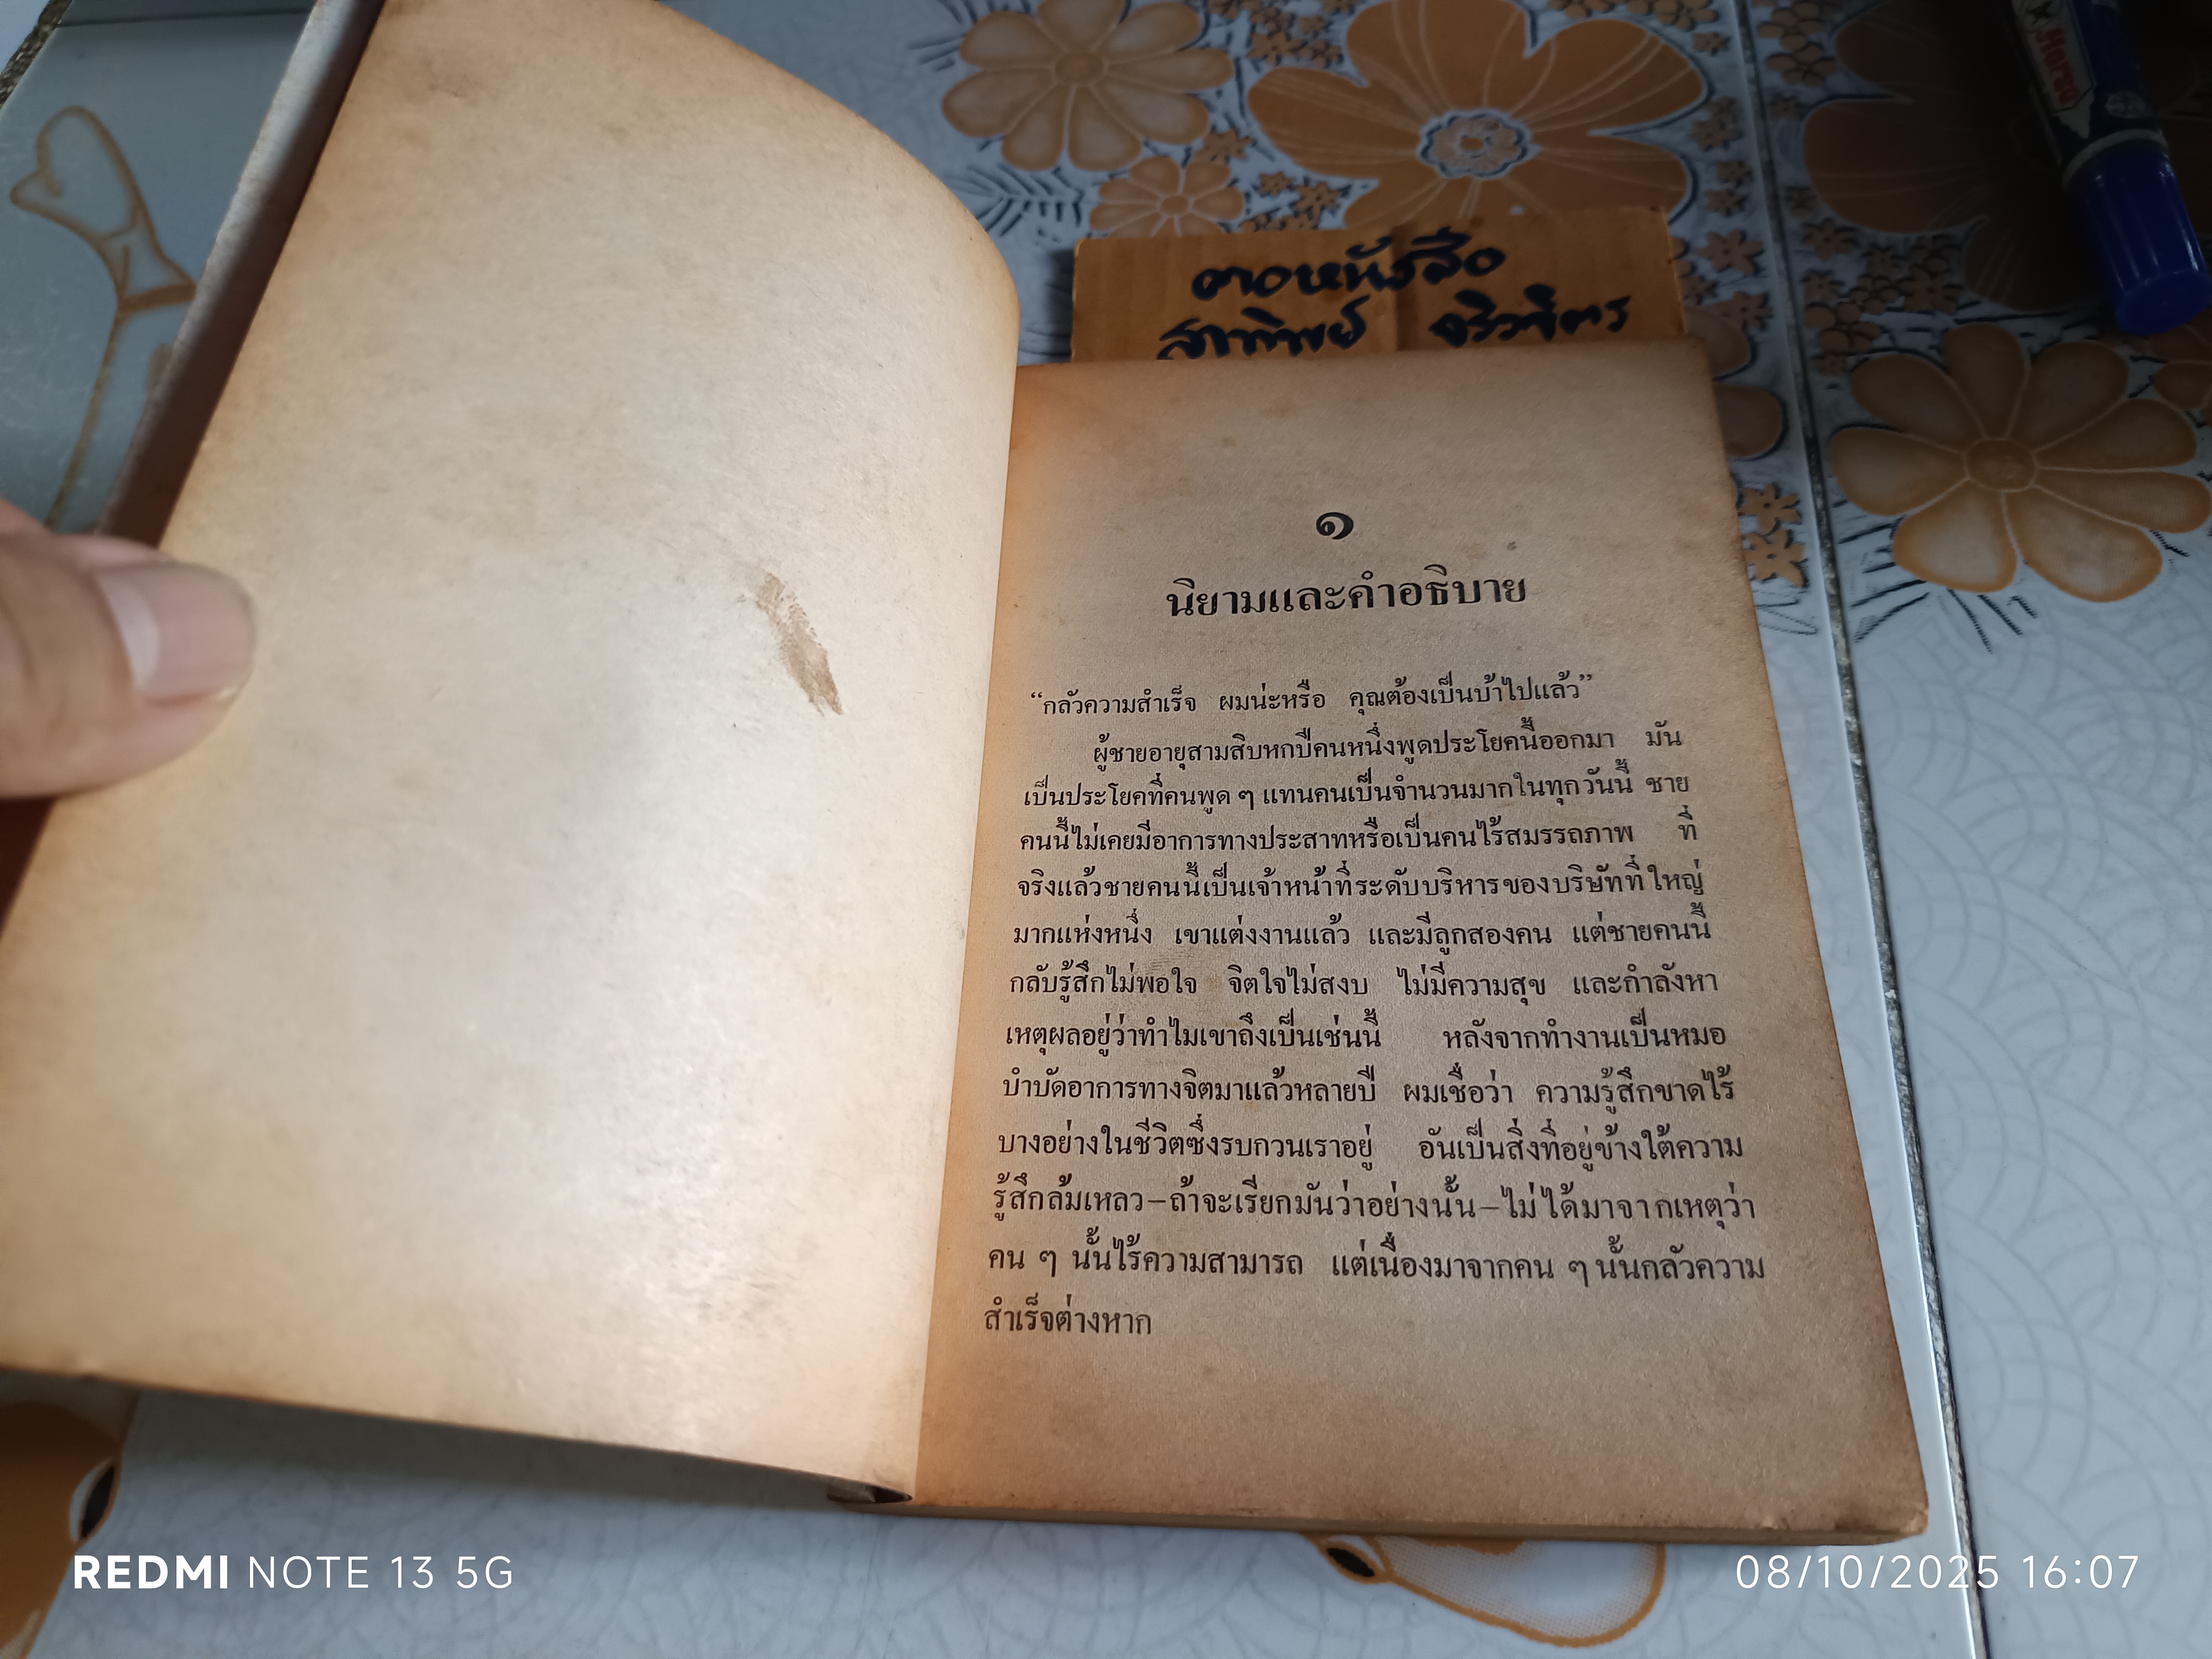 ตาอหนังสือ
สุาทิพย์
๑
นิยามและคำอธิบาย
“กลัวความสำเร็จ ผมน่ะหรือ คุณต้องเป็นบ้าไปแล้ว”
ผู้ชายอายุสามสิบหกปีคนหนึ่งพูดประโยคนี้ออกมา มัน
เป็นประโยคที่คนพูด ๆ แทนคนเป็นจำนวนมากในทุกวันนี้ ชาย
คนนี้ไม่เคยมีอาการทางประสาทหรือเป็นคนไร้สมรรถภาพ ที่
จริงแล้วชายคนนี้เป็นเจ้าหน้าที่ระดับบริหารของบริษัทที่ใหญ่
มากแห่งหนึ่ง เขาแต่งงานแล้ว และมีลูกสองคน แต่ชายคนนี้
กลับรู้สึกไม่พอใจ จิตใจไม่สงบ ไม่มีความสุข และกำลังหา
เหตุผลอยู่ว่าทำไมเขาถึงเป็นเช่นนี้ หลังจากทำงานเป็นหมอ
บำบัดอาการทางจิตมาแล้วหลายปี ผมเชื่อว่า ความรู้สึกขาดไร้
บางอย่างในชีวิตซึ่งรบกวนเราอยู่ อันเป็นสิ่งที่อยู่ข้างใต้ความ
รู้สึกล้มเหลว–ถ้าจะเรียกมันว่าอย่างนั้น–ไม่ได้มาจากเหตุว่า
คน ๆ นั้นไร้ความสามารถ แต่เนื่องมาจากคน ๆ นั้นกลัวความ
สำเร็จต่างหาก
Horse
REDMI NOTE 13 5G
08/10/2025 16:07